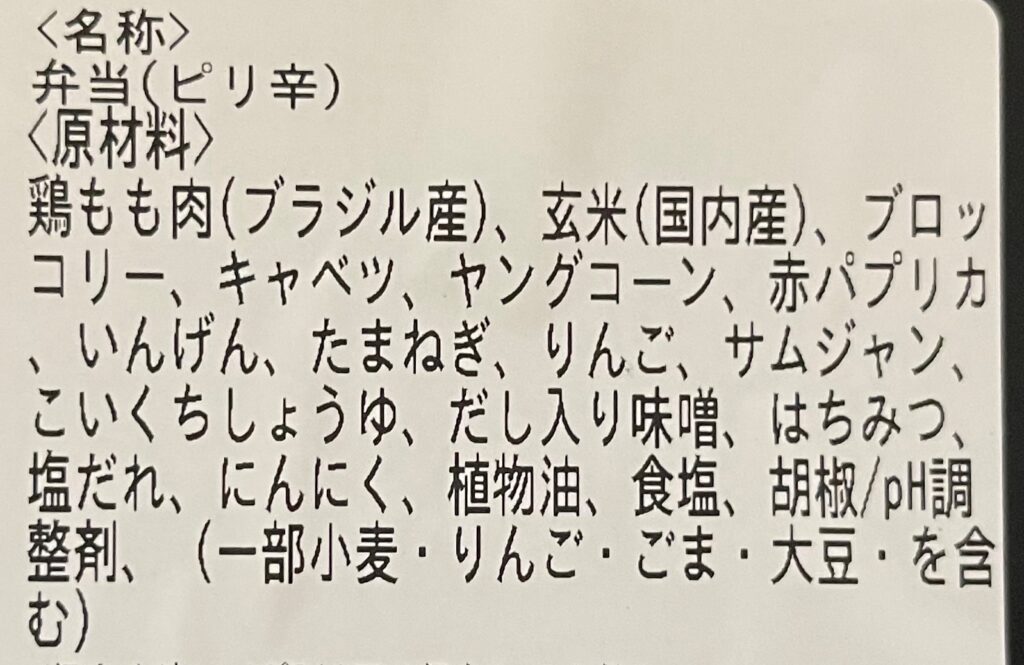 〈名称〉
弁当(ピリ辛)
〈原材料〉
鶏もも肉(ブラジル産)、玄米(国内産)、ブロッ
コリー、キャベツ、ヤングコーン、赤パプリカ
、いんげん、たまねぎ、りんご、サムジャン、
こいくちしょうゆ、だし入り味噌、はちみつ、
塩だれ、にんにく、植物油、食塩、胡椒/pH調
整剤、(一部小麦・りんご・ごま・大豆・を含
む)